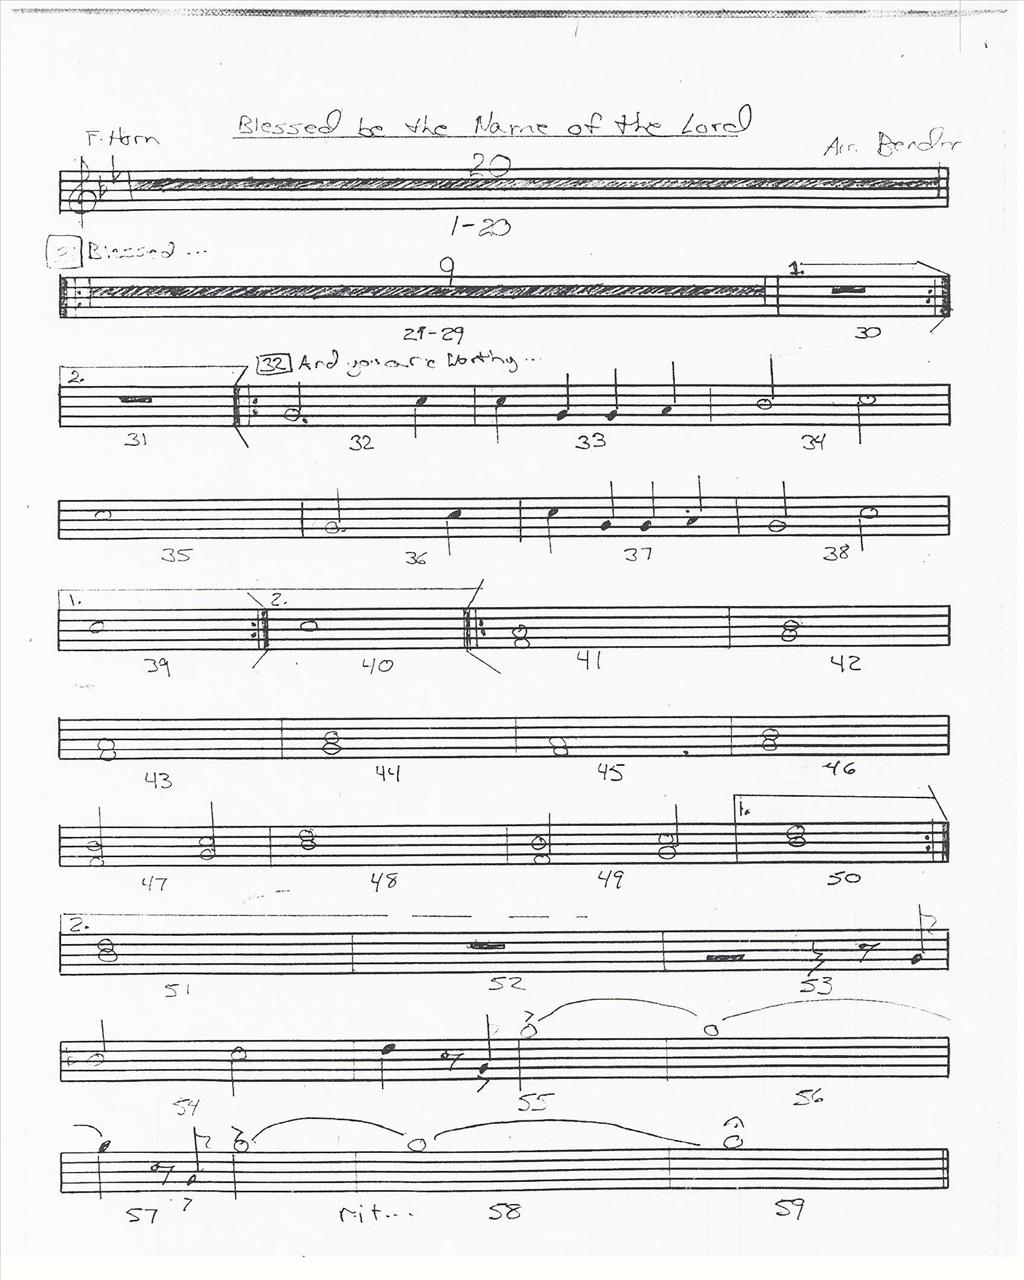 Blessed be the Name of the Lord
F. Horn
Arr. Bender
20
1-20
Blessed ...
9
1.
21-29
30
2.
32 And you are Worthy ...
31
32
33
34
35
36
37
38
1.
2.
39
40
41
42
43
44
45
46
1.
47
48
49
50
2.
51
52
53
54
55
56
57
rit...
58
59